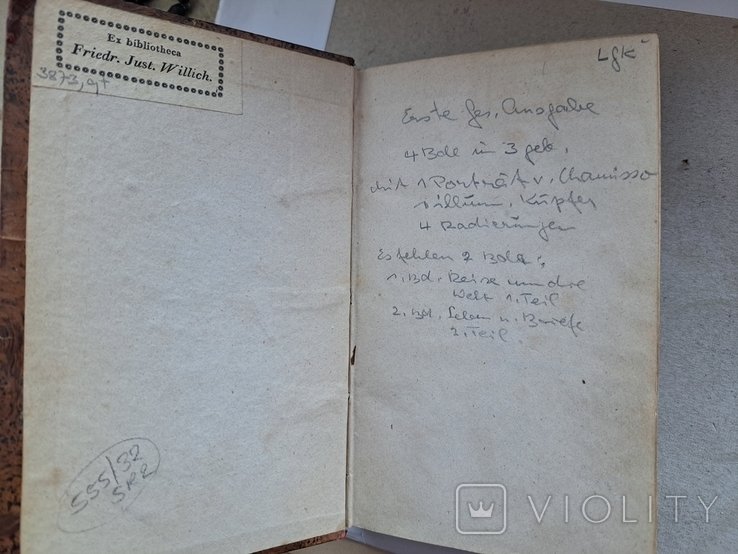 Ex bibliotheca
Friedr. Just. Willich.
3873, gt
Lgk
Erste Ges. Ausgabe
4 Bde in 3 geb.
mit 1 Porträt v. Chamisso
illum. Kupfer
4 Radierungen
Es fehlen 2 Bde:
1. Bd. Reise um die
Welt 1. Teil
2. Bd. Leben u. Briefe
Teil.
555/32
VIOLITY